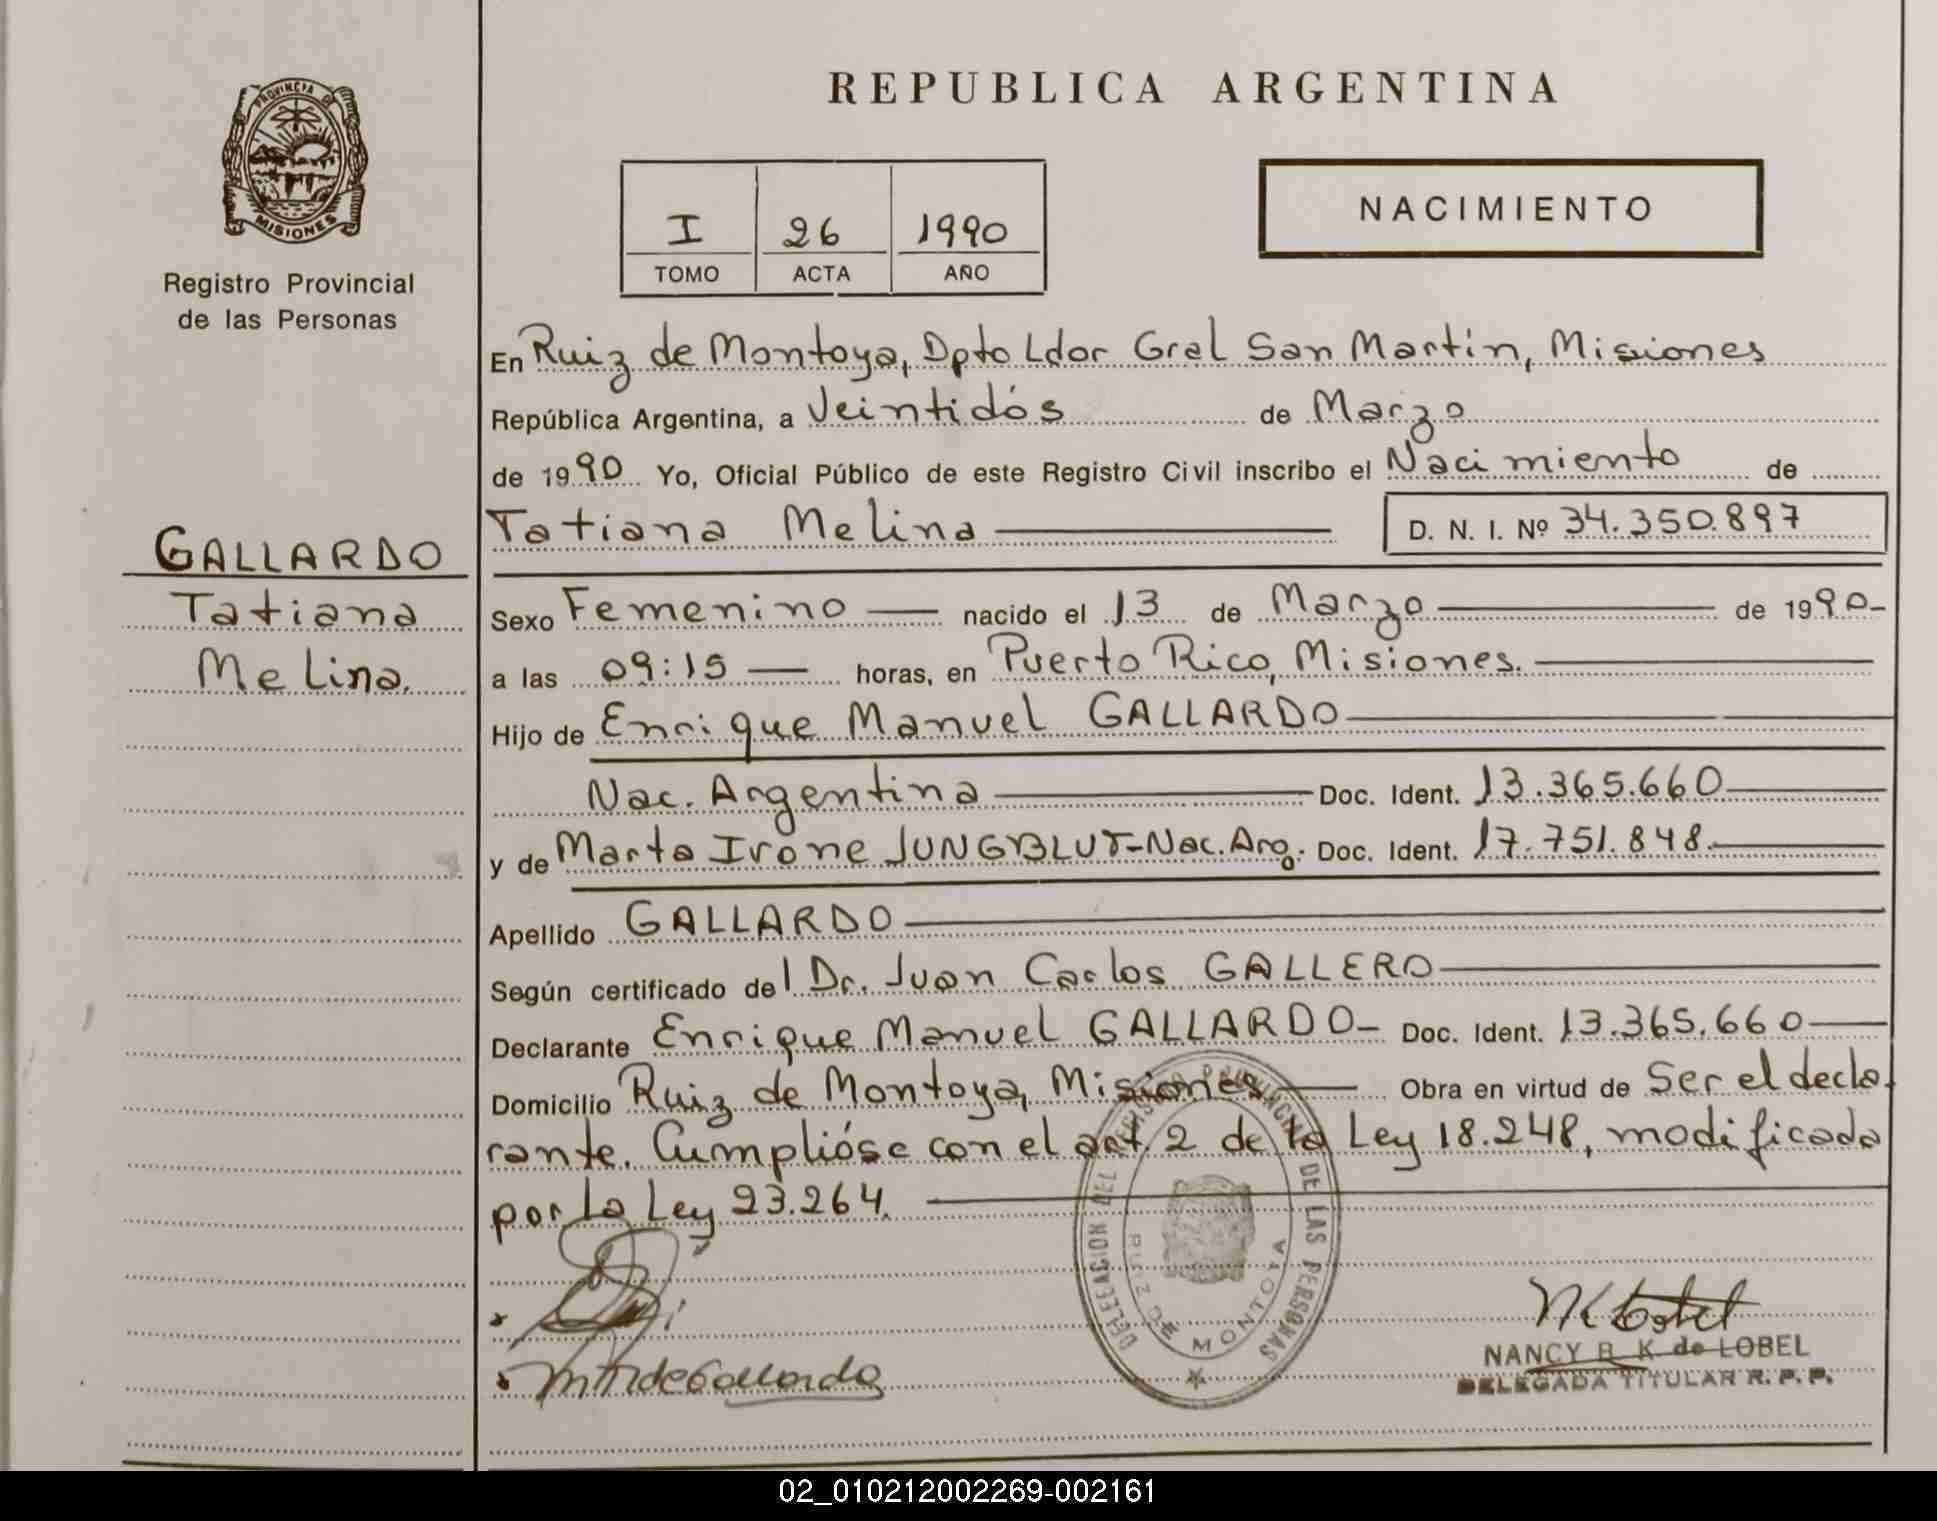 PROVINCIA DE
MISIONES
Registro Provincial
de las Personas
GALLARDO
Tatiana
Melina.
REPUBLICA ARGENTINA
I 26 1990
TOMO ACTA AÑO
NACIMIENTO
En Ruiz de Montoya, Dpto Ldor Gral San Martín, Misiones
República Argentina, a Veintidós de Marzo
de 1990 Yo, Oficial Público de este Registro Civil inscribo el Nacimiento de
Tatiana Melina D. N. I. Nº 34.350.897
Sexo Femenino nacido el 13 de Marzo de 1990
a las 09:15 horas, en Puerto Rico, Misiones.
Hijo de Enrique Manuel GALLARDO
Nac. Argentina Doc. Ident. 13.365.660
y de Marta Irone JUNGBLUT-Nac. Arg. Doc. Ident. 17.751.848.
Apellido GALLARDO
Según certificado del Dr. Juan Carlos GALLERO
Declarante Enrique Manuel GALLARDO- Doc. Ident. 13.365.660
Domicilio Ruiz de Montoya, Misiones Obra en virtud de Ser el decla-
rante. Cumplióse con el art. 2 de la Ley 18.248, modificada
por la Ley 23.264.
DELEGACION DEL REGISTRO PROVINCIAL DE LAS PERSONAS
RUIZ DE MONTOYA
de Gallardo
NANCY R. K. de LOBEL
DELEGADA TITULAR R. P. P.
02_010212002269-002161